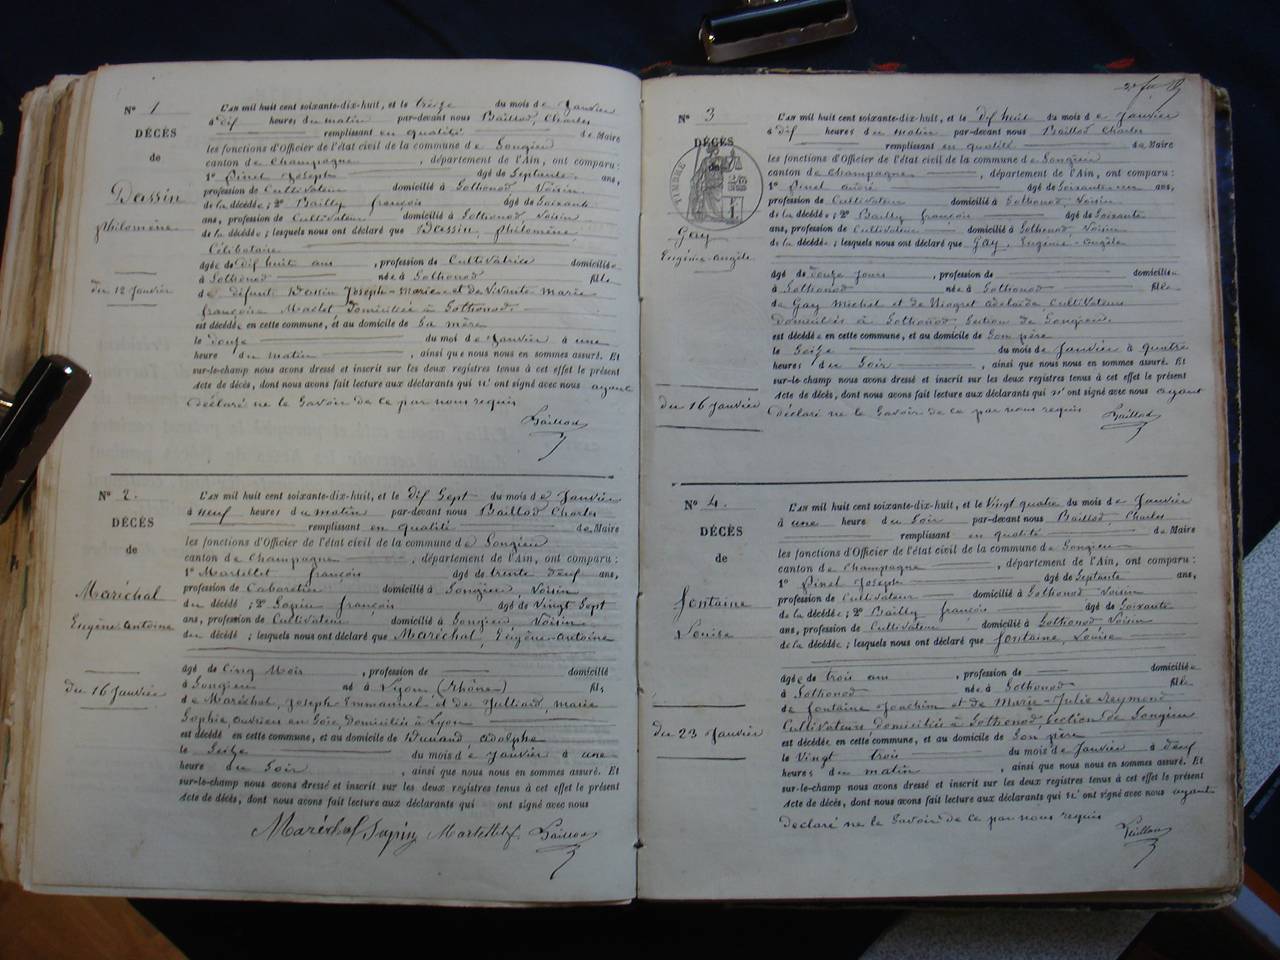 N° 1
DÉCÈS
de
Dessin
philomène
du 12 Janvier
L'AN mil huit cent soixante-dix-huit, et le treize du mois de Janvier
à dix heures du matin par-devant nous Baillod, Charles
remplissant en qualité de Maire
les fonctions d'Officier de l'état civil de la commune de Songieu
canton de Champagne, département de l'Ain, ont comparu :
1° Pinet Joseph âgé de Septante ans,
profession de Cultivateur domicilié à Sothonod Voisin
de la décédée ; 2° Bailly françois âgé de Soixante
ans, profession de Cultivateur domicilié à Sothonod Voisin
de la décédée ; lesquels nous ont déclaré que Dessin, philomène
Célibataire
âgée de dix huit ans, profession de Cultivatrice domiciliée
à Sothonod née à Sothonod fille
de défunt Dessin Joseph-Marie et de Vivante Marie
françoise Maclet Domiciliée à Sothonod.
est décédée en cette commune, et au domicile de Sa mère
le douze du moi de Janvier à une
heure du matin, ainsi que nous nous en sommes assuré. Et
sur-le-champ nous avons dressé et inscrit sur les deux registres tenus à cet effet le présent
Acte de décès, dont nous avons fait lecture aux déclarants qui n'ont signé avec nous ayant
déclaré ne le Savoir de ce par nous requis
Baillod
N° 2.
DÉCÈS
de
Maréchal
Eugène-Antoine
du 16 Janvier
L'AN mil huit cent soixante-dix-huit, et le dix Sept du mois de Janvier
à neuf heures du matin par-devant nous Baillod Charles
remplissant en qualité de Maire
les fonctions d'Officier de l'état civil de la commune de Songieu
canton de Champagne, département de l'Ain, ont comparu :
1° Martellet françois âgé de trente deux ans,
profession de Cabaretier domicilié à Songieu, Voisin
du décédé ; 2° Sapin françois âgé de Vingt Sept
ans, profession de Cultivateur domicilié à Songieu Voisin
du décédé ; lesquels nous ont déclaré que Maréchal, Eugène-Antoine
âgé de Cinq Mois, profession de domicilié
à Songieu né à Lyon (Rhône) fils
de Maréchal, Joseph Emmanuel et de Julliard, marie
Sophie, ouvriers en Soie, Domiciliés à Lyon
est décédé en cette commune, et au domicile de Durand, adolphe
le Seize du mois de Janvier à une
heure du Soir, ainsi que nous nous en sommes assuré. Et
sur-le-champ nous avons dressé et inscrit sur les deux registres tenus à cet effet le présent
Acte de décès, dont nous avons fait lecture aux déclarants qui ont signé avec nous
Maréchal Sapin Martellet Baillod
N° 3
DÉCÈS
de
TIMBRE
Gay
Eugénie-Angèle
du 16 Janvier
L'AN mil huit cent soixante-dix-huit, et le dix huit du mois de Janvier
à dix heures du matin par-devant nous Baillod Charles
remplissant en qualité de Maire
les fonctions d'Officier de l'état civil de la commune de Songieu
canton de Champagne, département de l'Ain, ont comparu :
1° Pinet André âgé de Soixante un ans,
profession de Cultivateur domicilié à Sothonod, Voisin
de la décédée ; 2° Bailly françois âgé de Soixante
ans, profession de Cultivateur domicilié à Sothonod, Voisin
de la décédée ; lesquels nous ont déclaré que Gay, Eugénie-Angèle
âgé de douze jours, profession de domiciliée
à Sothonod née à Sothonod fille
de Gay Michel et de Niogret adelaïde Cultivateurs
Domiciliés à Sothonod Section de Songieu.
est décédée en cette commune, et au domicile de Son père
le Seize du mois de Janvier à quatre
heures du Soir, ainsi que nous nous en sommes assuré. Et
sur-le-champ nous avons dressé et inscrit sur les deux registres tenus à cet effet le présent
Acte de décès, dont nous avons fait lecture aux déclarants qui n'ont signé avec nous ayant
déclaré ne le Savoir de ce par nous requis
Baillod
N° 4.
DÉCÈS
de
fontaine
Louise
du 23 Janvier
L'AN mil huit cent soixante-dix-huit, et le Vingt quatre du mois de Janvier
à une heure du Soir par-devant nous Baillod, Charles
remplissant en qualité de Maire
les fonctions d'Officier de l'état civil de la commune de Songieu
canton de Champagne, département de l'Ain, ont comparu :
1° Pinet Joseph âgé de Septante ans,
profession de Cultivateur domicilié à Sothonod Voisin
de la décédée ; 2° Bailly françois âgé de Soixante
ans, profession de Cultivateur domicilié à Sothonod Voisin
de la décédée ; lesquels nous ont déclaré que fontaine, Louise
âgée de trois ans, profession de domiciliée
à Sothonod née à Sothonod fille
de fontaine Joachim et de Marie-Julie Reymond
Cultivateurs domiciliés à Sothonod, Section de Songieu
est décédée en cette commune, et au domicile de Son père
le Vingt trois du mois de Janvier à deux
heures du matin, ainsi que nous nous en sommes assuré. Et
sur-le-champ nous avons dressé et inscrit sur les deux registres tenus à cet effet le présent
Acte de décès, dont nous avons fait lecture aux déclarants qui n'ont signé avec nous ayant
Déclaré ne le Savoir de ce par nous requis
Baillod